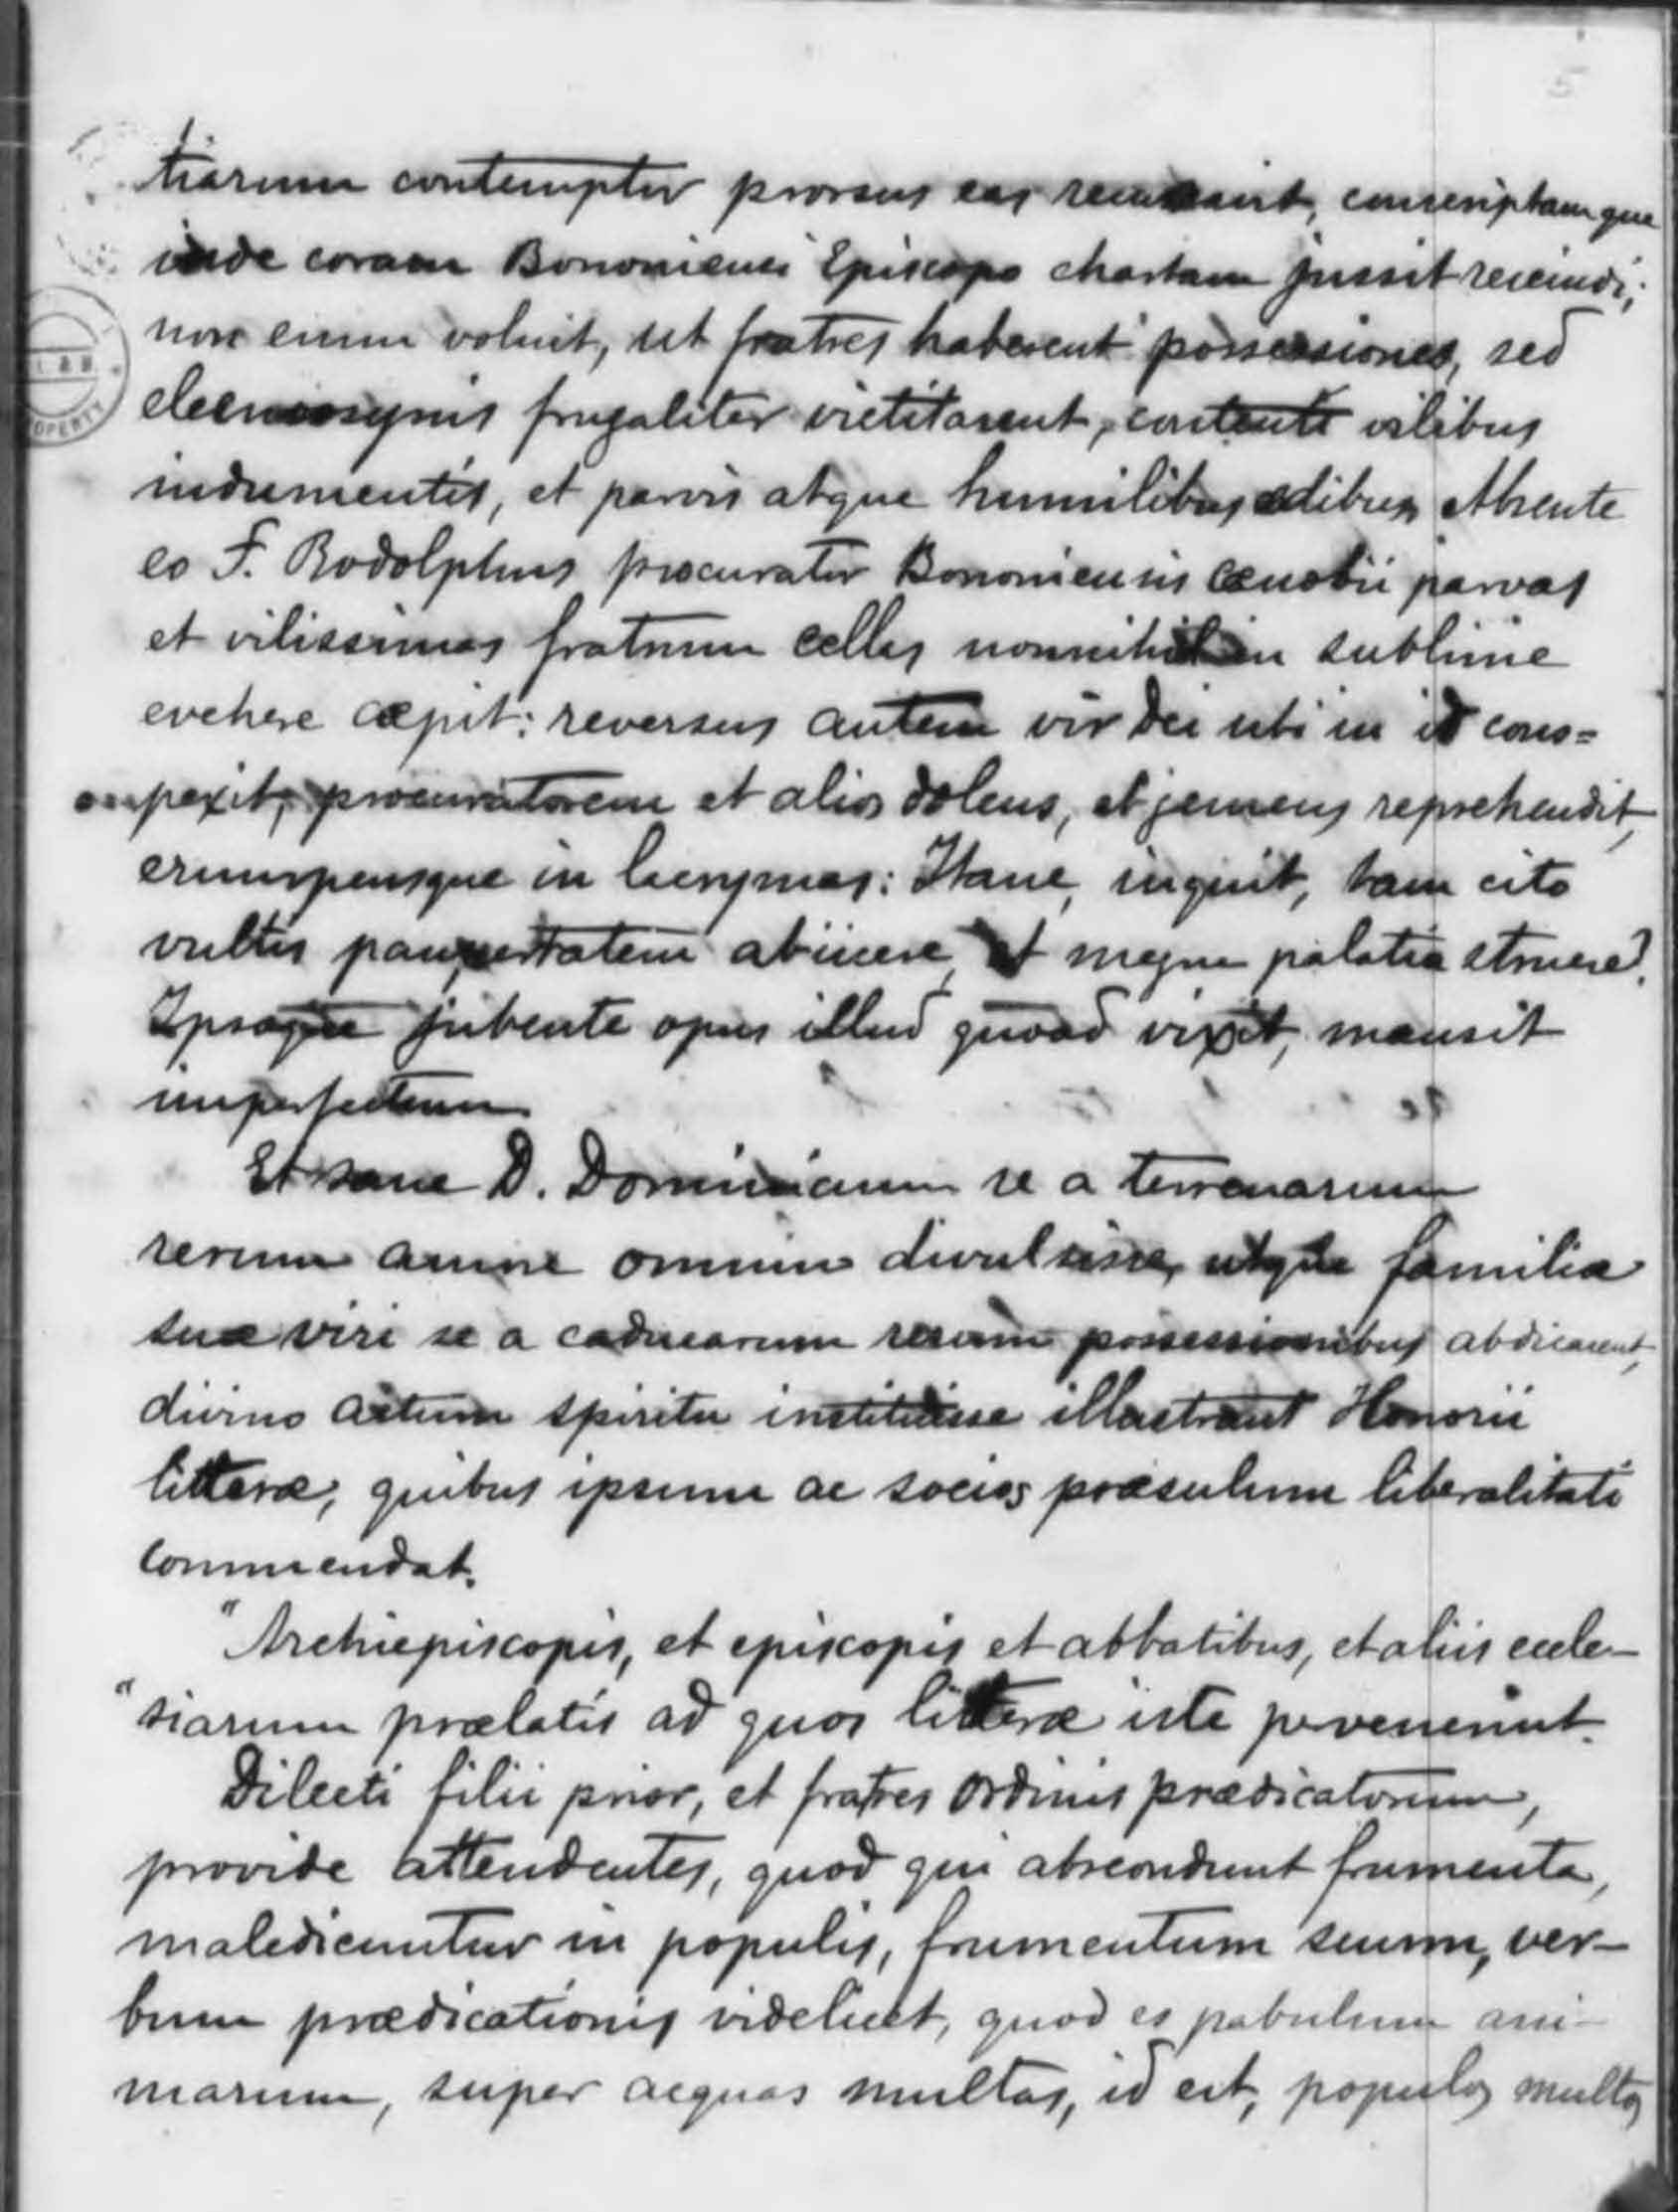 tiarum contemptor prorsus eas recusavit, conscriptamque
inde coram Bononiensi Episcopo chartam jussit rescindi;
non enim voluit, ut fratres haberent possessiones, sed
eleemosynis frugaliter victitarent, contenti vilibus
indumentis, et parvis atque humilibus ædibus. Absente
eo F. Rodolphus procurator Bononiensis cœnobii parvas
et vilissimas fratrum cellas nonnihil in sublime
evehere cœpit: reversus autem vir Dei ubi in id cons=
pexit, procuratorem et alios dolens, et gemens reprehendit,
erumpensque in lacrymas: Itane, inquit, tam cito
vultis paupertatem abiicere, et magna palatia struere?
Ipsoque jubente opus illud quoad vixit, mansit
imperfectum.
Et sane D. Dominicum se a terrenarum
rerum amore omnino divulsisse, utque familiæ
suæ viri se a caducarum rerum possessionibus abdicarent,
divino actum spiritu instituisse illustrant Honorii
litteræ, quibus ipsum ac socios præsulum liberalitati
commendat.
"Archiepiscopis, et episcopis et abbatibus, et aliis eccle-
"siarum prælatis ad quos litteræ iste pervenerint.
Dilecti filii prior, et fratres Ordinis prædicatorum,
provide attendentes, quod qui abscondunt frumenta,
maledicuntur in populis, frumentum suum, ver-
bum prædicationis videlicet, quod es pabulum ani-
marum, super acquas multas, id est, populos multos